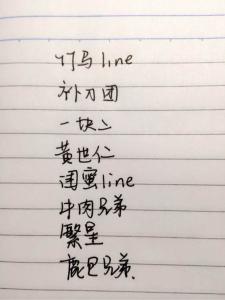 竹马line
补刀团
一块二
黄世仁
闺蜜line
牛肉兄弟
繁星
鹿包兄弟